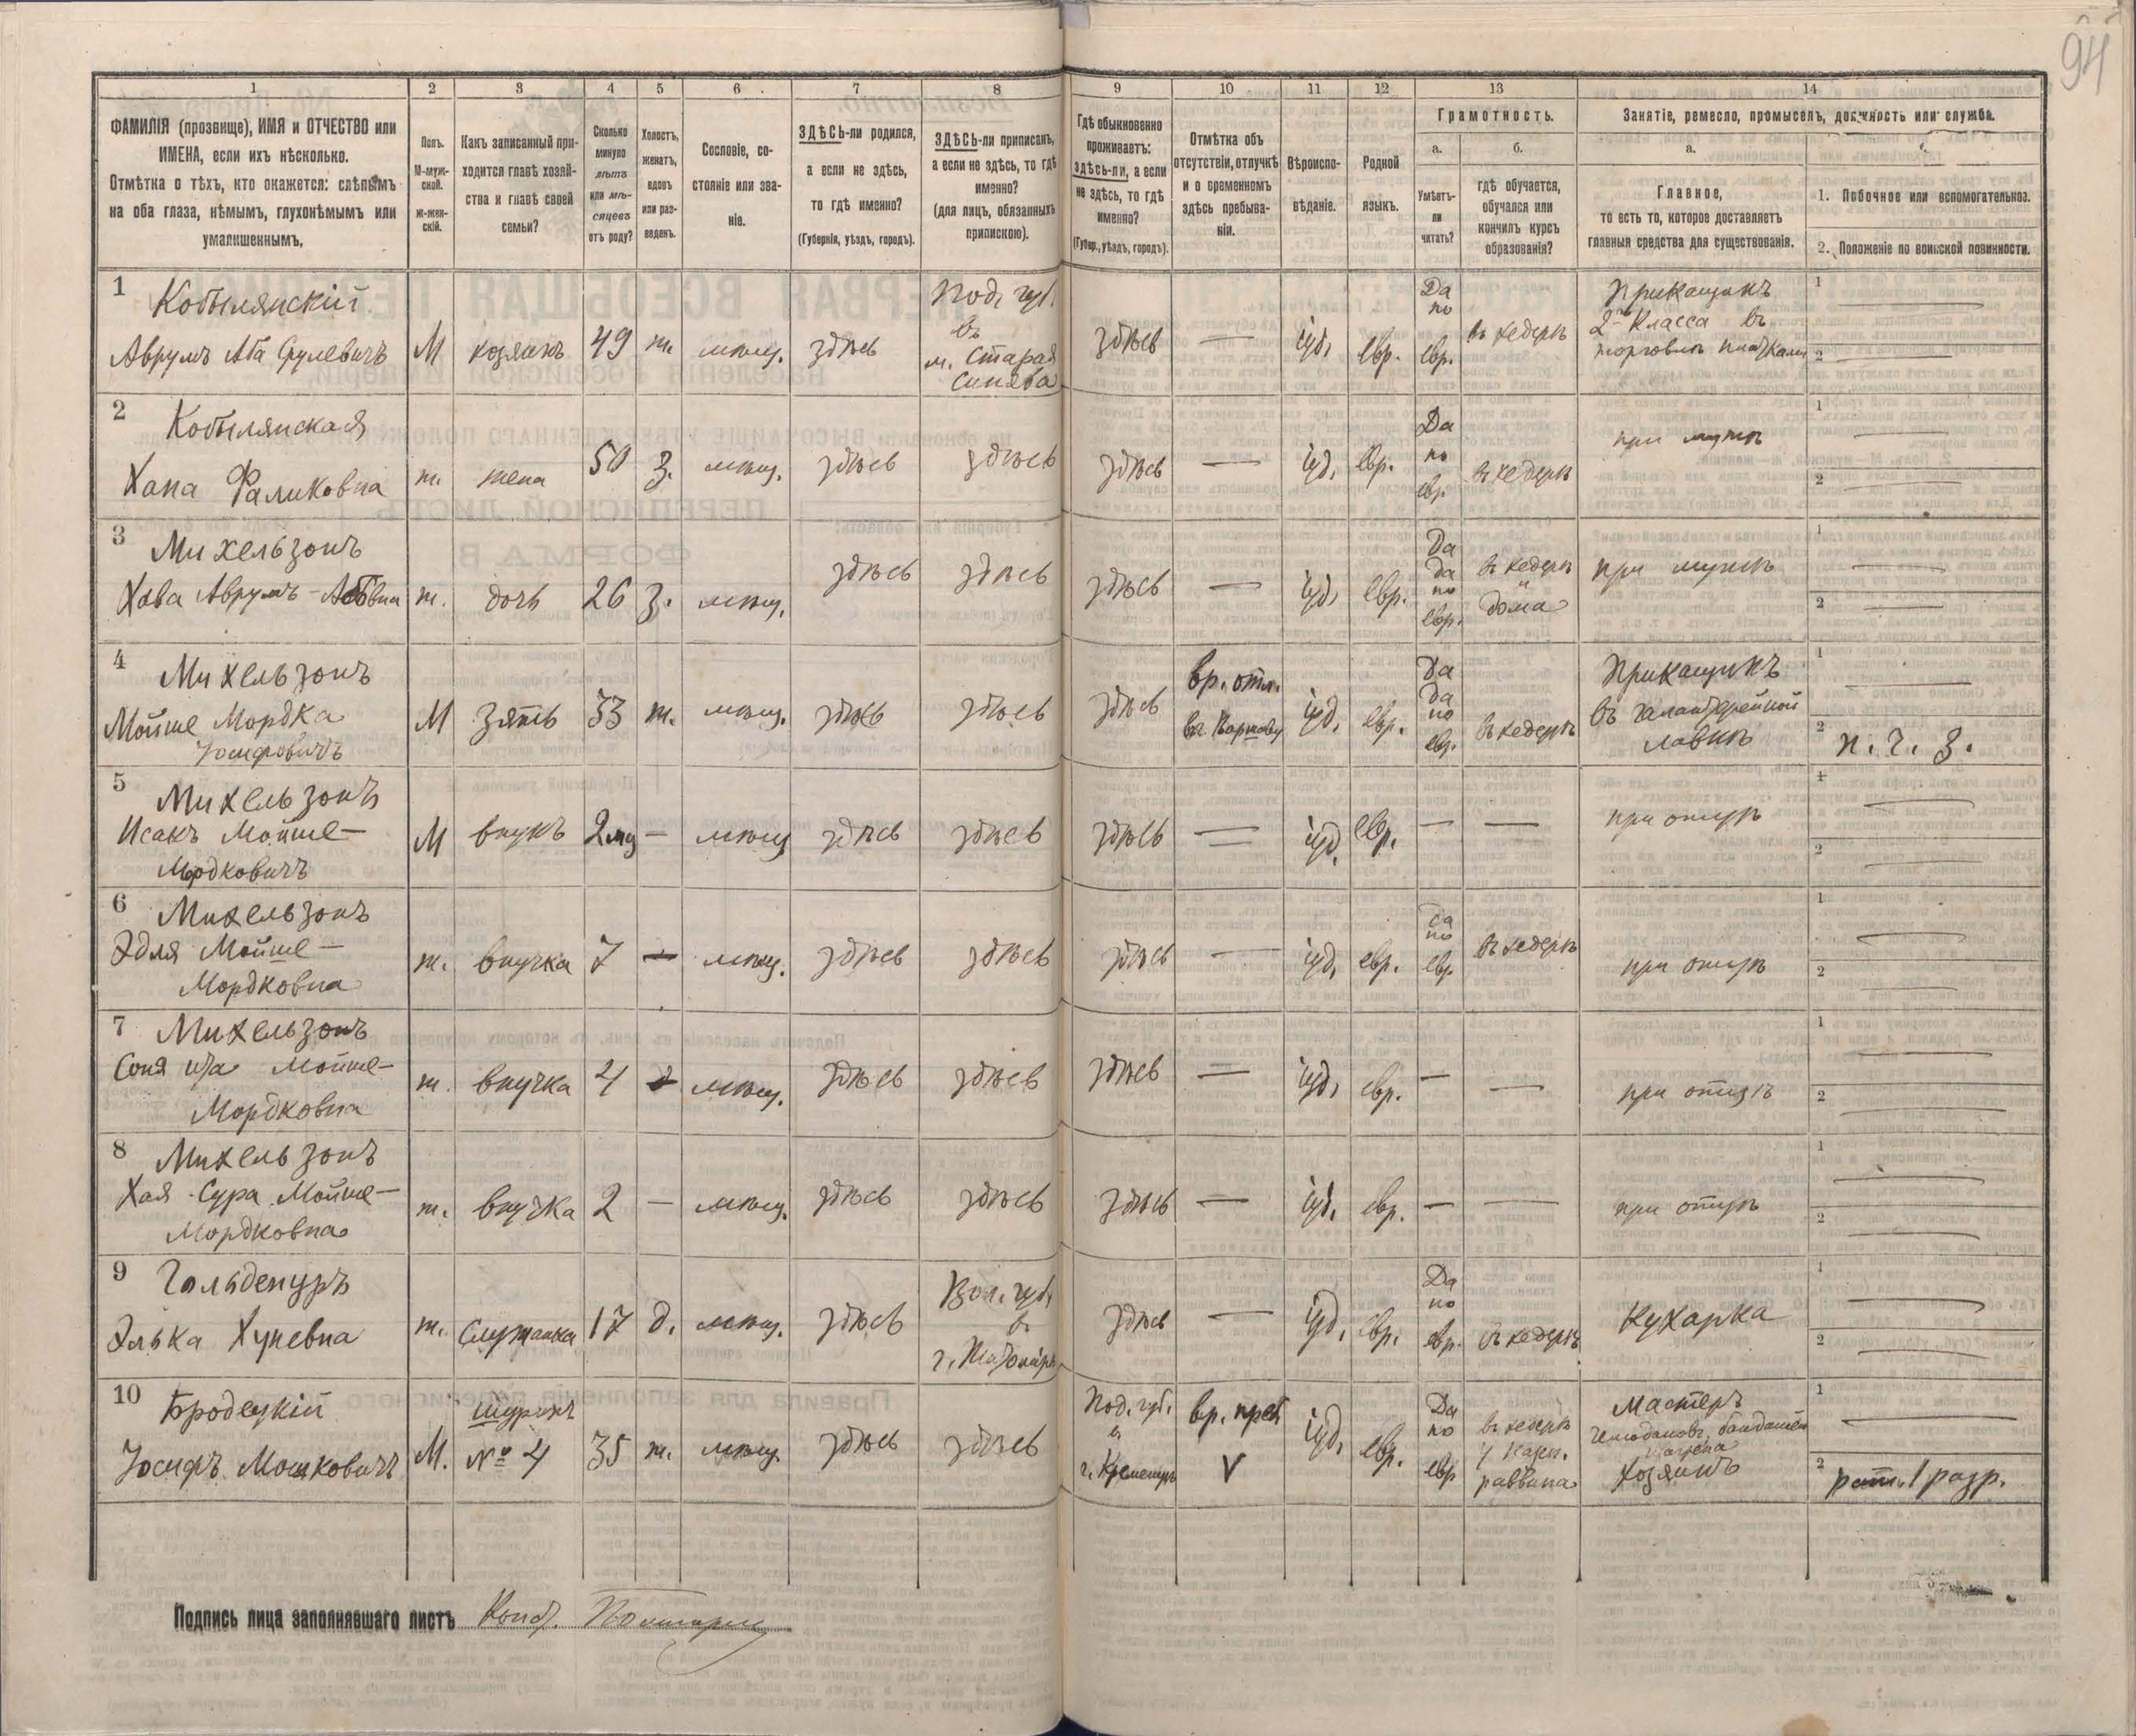 94
1 2 3 4 5 6 7 8 9 10 11 12 13 14
ФАМИЛІЯ (прозвище), ИМЯ и ОТЧЕСТВО или
ИМЕНА, если ихъ нѣсколько.
Отмѣтка о тѣхъ, кто окажется: слѣпымъ
на оба глаза, нѣмымъ, глухонѣмымъ или
умалишеннымъ.
Полъ.
М-муж-
ской.
ж-жен-
скій.
Какъ записанный при-
ходится главѣ хозяй-
ства и главѣ своей
семьи?
Сколько
минуло
лѣтъ
или мѣ-
сяцевъ
отъ роду?
Холостъ,
женатъ,
вдовъ
или раз-
веденъ.
Сословіе, со-
стояніе или зва-
ніе.
ЗДѢСЬ-ли родился,
а если не здѣсь,
то гдѣ именно?
(Губернія, уѣздъ, городъ).
ЗДѢСЬ-ли приписанъ,
а если не здѣсь, то гдѣ
именно?
(для лицъ, обязанныхъ
припискою).
Гдѣ обыкновенно
проживаетъ:
здѣсь-ли, а если
не здѣсь, то гдѣ
именно?
(Губер., уѣздъ, городъ).
Отмѣтка объ
отсутствіи, отлучкѣ
и о временномъ
здѣсь пребыва-
ніи.
Вѣроиспо-
вѣданіе.
Родной
языкъ.
Грамотность.
а.
Умѣетъ-
ли
читать?
б.
гдѣ обучается,
обучался или
кончилъ курсъ
образованія?
Занятіе, ремесло, промыселъ, должность или служба.
а.
Главное,
то есть то, которое доставляетъ
главныя средства для существованія.
1. Побочное или вспомогательное.
2. Положеніе по воинской повинности.
1 Кобылянскій
Аврумъ Аба Срулевичъ
М хозяинъ 49 ж. мѣщ. здѣсь
Под. губ.
въ
м. Старая
Синява
здѣсь — іуд. евр.
Да
по
евр.
въ хедерѣ
Прикащикъ
2го класса въ
торговлѣ
1 —
2 —
2 Кобылянская
Хана Фаликовна
ж. жена 50 з. мѣщ. здѣсь здѣсь
здѣсь — іуд. евр.
Да
по
евр.
въ хедерѣ
при мужѣ
1 —
2 —
3 Михельзонъ
Хава Аврумъ-Абовна
ж. дочь 26 з. мѣщ. здѣсь здѣсь
здѣсь — іуд. евр.
Да
да
по
евр.
въ хедерѣ
и
дома
при мужѣ
1 —
2 —
4 Михельзонъ
Мойше Мордка
Іосифовичъ
М зять 33 ж. мѣщ. здѣсь здѣсь
здѣсь
вр. отл.
іуд. евр.
Да
да
по
евр.
въ хедерѣ
Прикащикъ
въ галантерейной
лавкѣ
1 —
2 н. ч. з.
5 Михельзонъ
Исакъ Мойше-
Мордковичъ
М внукъ — мѣщ. здѣсь здѣсь
здѣсь — іуд. евр. — —
при отцѣ
1 —
2 —
6 Михельзонъ
Эдля Мойше-
Мордковна
ж. внучка 7 — мѣщ. здѣсь здѣсь
здѣсь — іуд. евр.
да
по
евр.
въ хедерѣ
при отцѣ
1 —
2 —
7 Михельзонъ
Соня Мойше-
Мордковна
ж. внучка 4 — мѣщ. здѣсь здѣсь
здѣсь — іуд. евр. — —
при отцѣ
1 —
2 —
8 Михельзонъ
Хая-Сура Мойше-
Мордковна
ж. внучка 2 — мѣщ. здѣсь здѣсь
здѣсь — іуд. евр. — —
при отцѣ
1 —
2 —
9 Гольденуръ
Элька Хуневна
ж. служанка 17 д. мѣщ. здѣсь
Вол. губ.
въ
г. Житоміръ
здѣсь — іуд. евр.
Да
по
евр.
въ хедерѣ
Кухарка
1 —
2 —
10 Бродецкій
Іосифъ Мошковичъ
М.
шуринъ
№ 4
35 ж. мѣщ. здѣсь здѣсь
Под. губ.
в.
вр. преб
V
іуд. евр.
Да
по
евр
въ хедерѣ
у казен.
раввина
Мастеръ
чемодановъ,
хозяинъ
1 —
2 рат. 1 разр.
Подпись лица заполнявшаго листъ